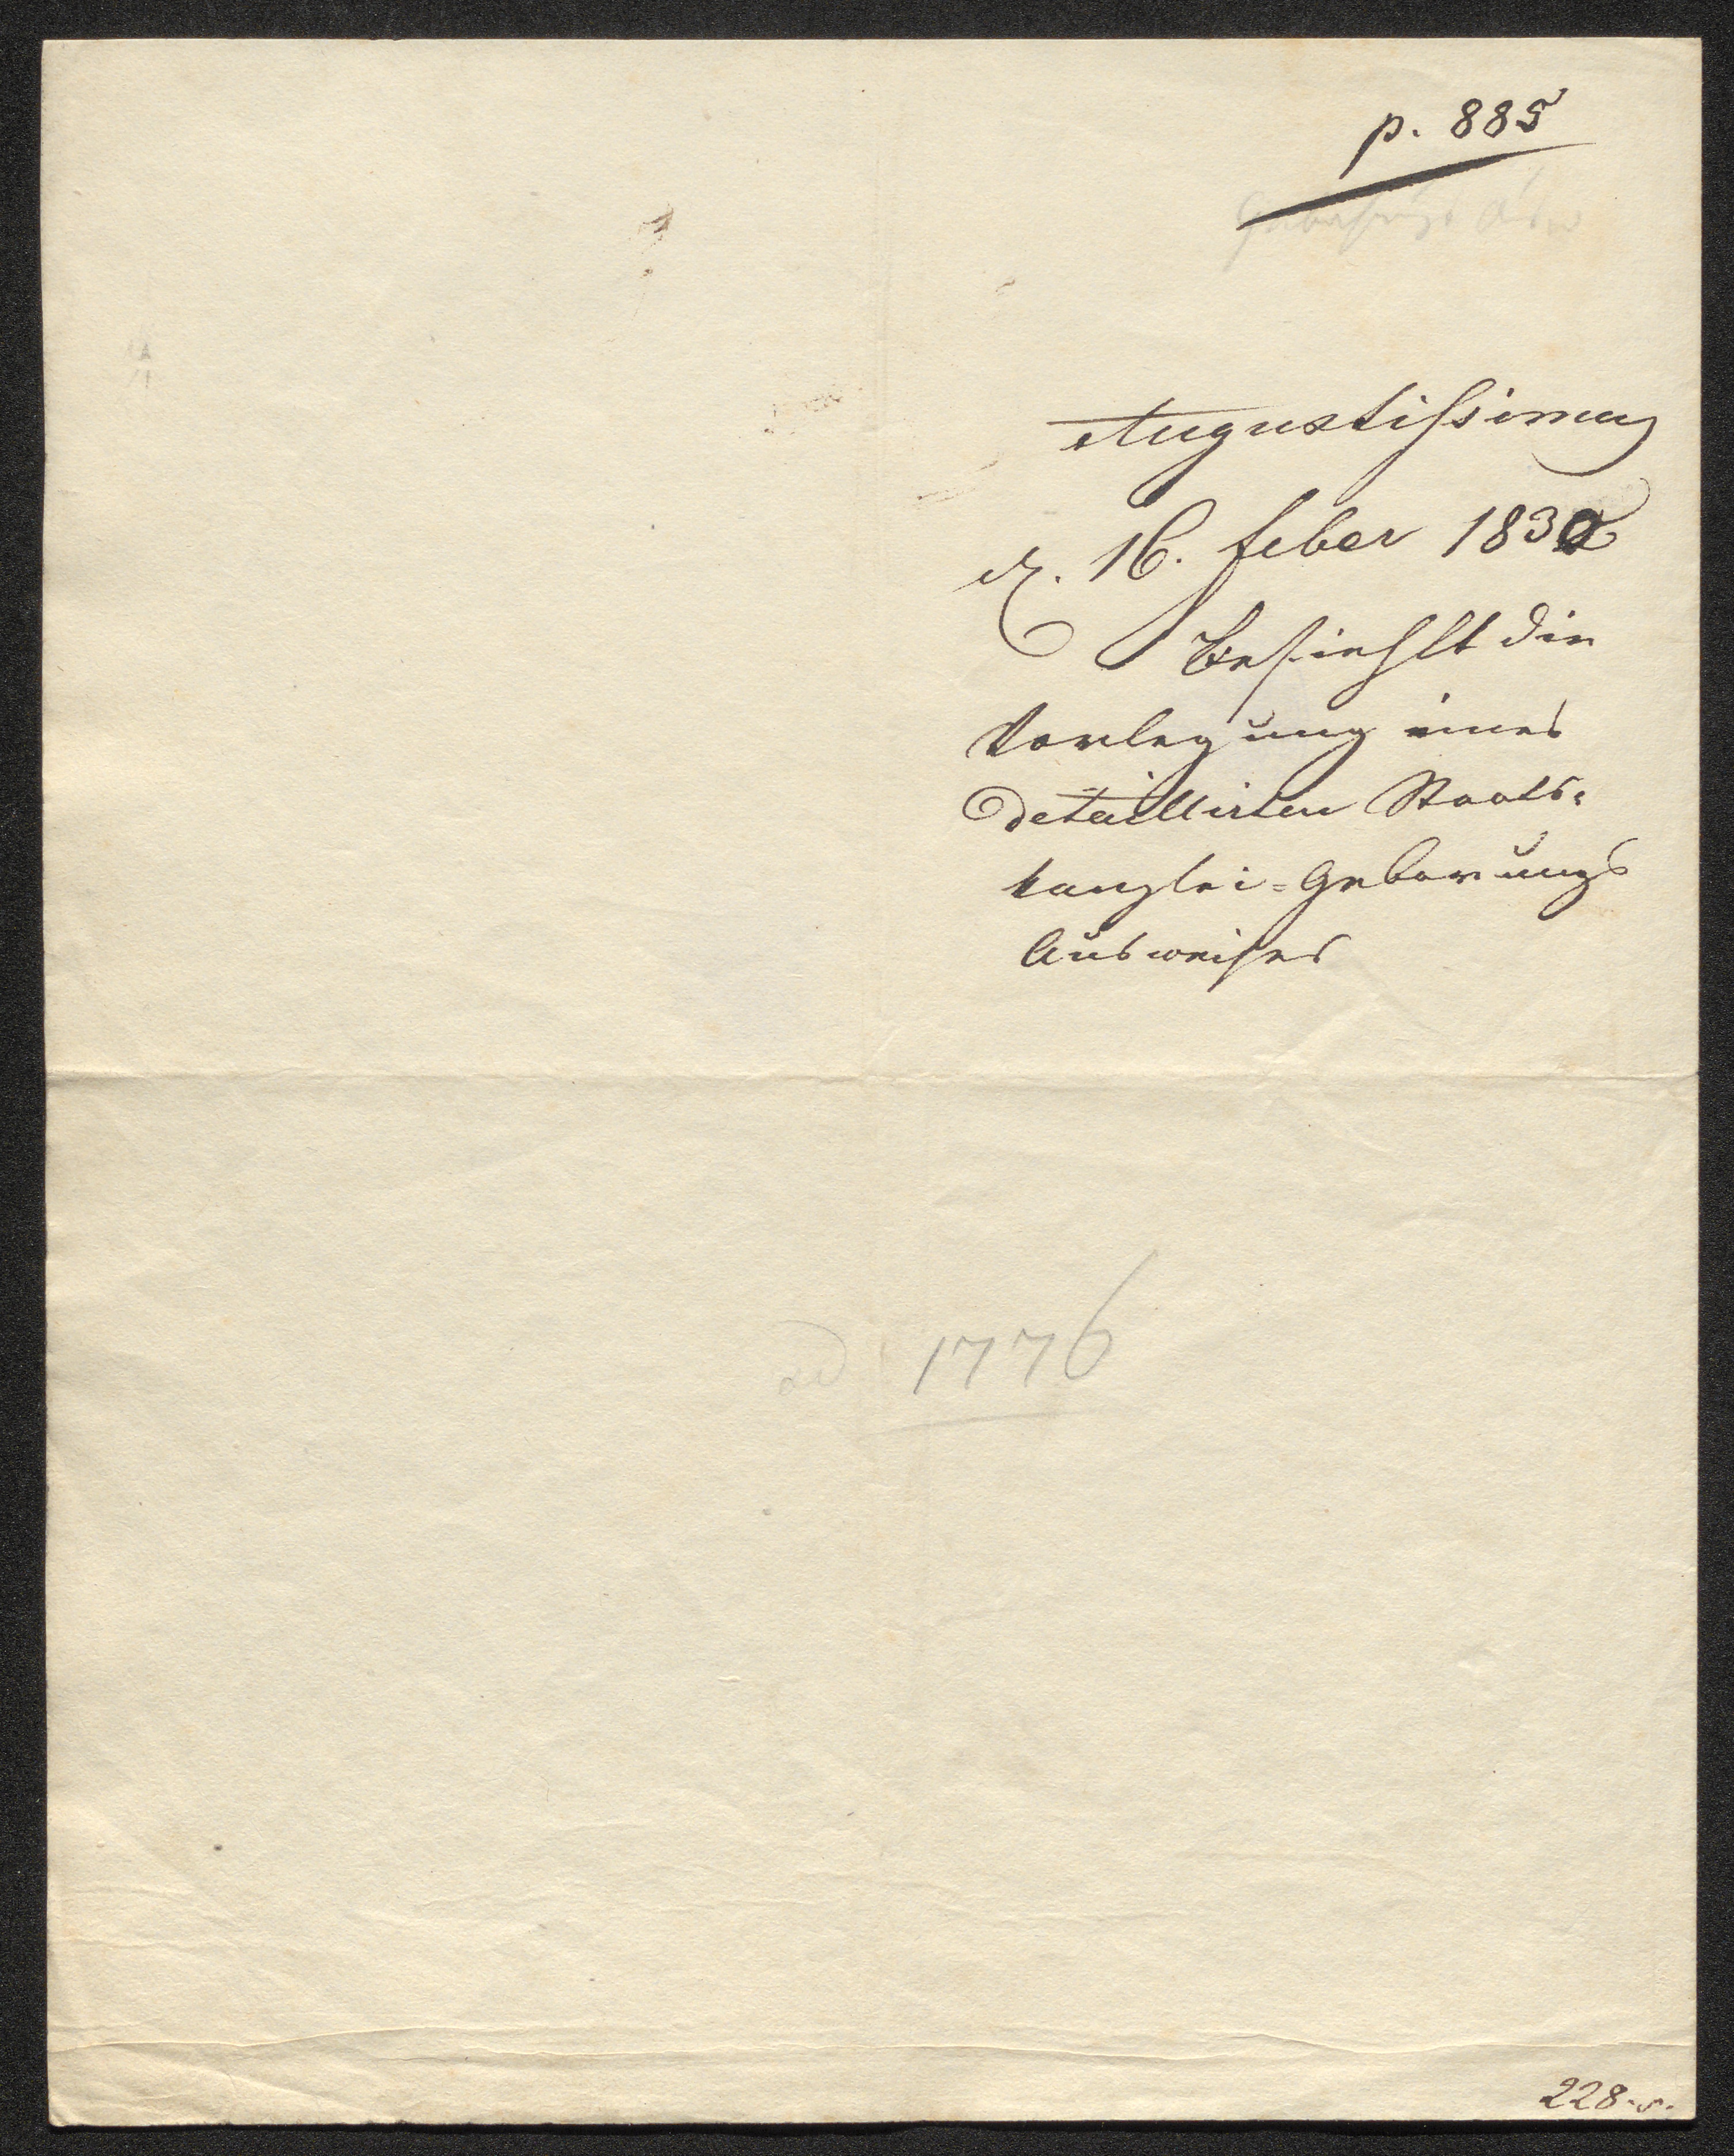 p. 885
Augustissimus
d. 16. feber 1832
Befiehlt die
Vorlegung eines
detaillirten Staats-
kanzlei-Gebarungs
Ausweises
ad 1776
228.